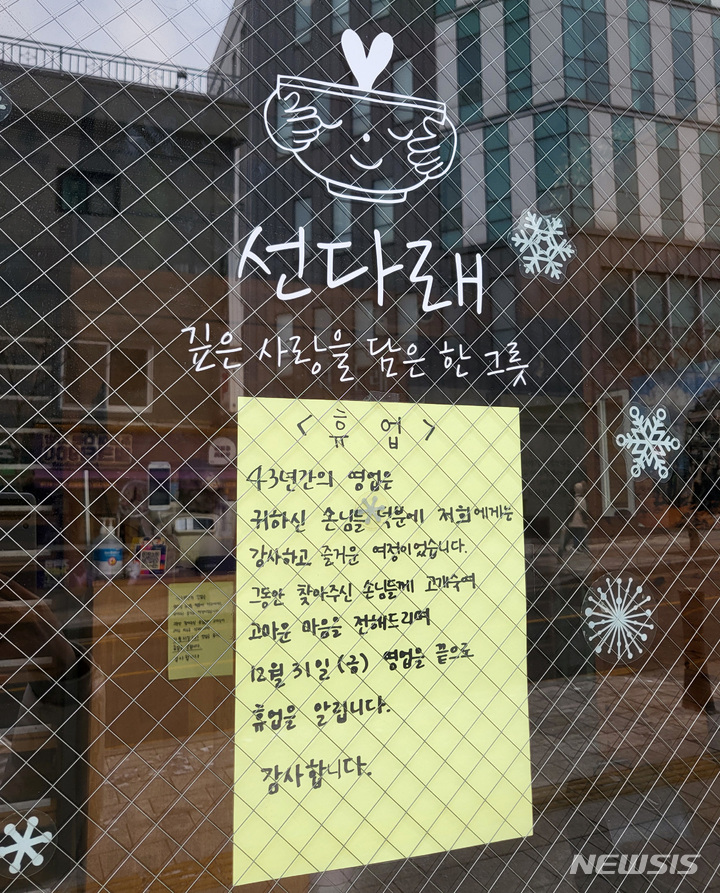 선다래
깊은 사랑을 담은 한 그릇
< 휴 업 >
43년간의 영업은
귀하신 손님들 덕분에 저희에게는
감사하고 즐거운 여정이었습니다.
그동안 찾아주신 손님들께 고개숙여
고마운 마음을 전해드리며
12월 31일 (금) 영업을 끝으로
휴업을 알립니다.
감사합니다.
NEWSIS